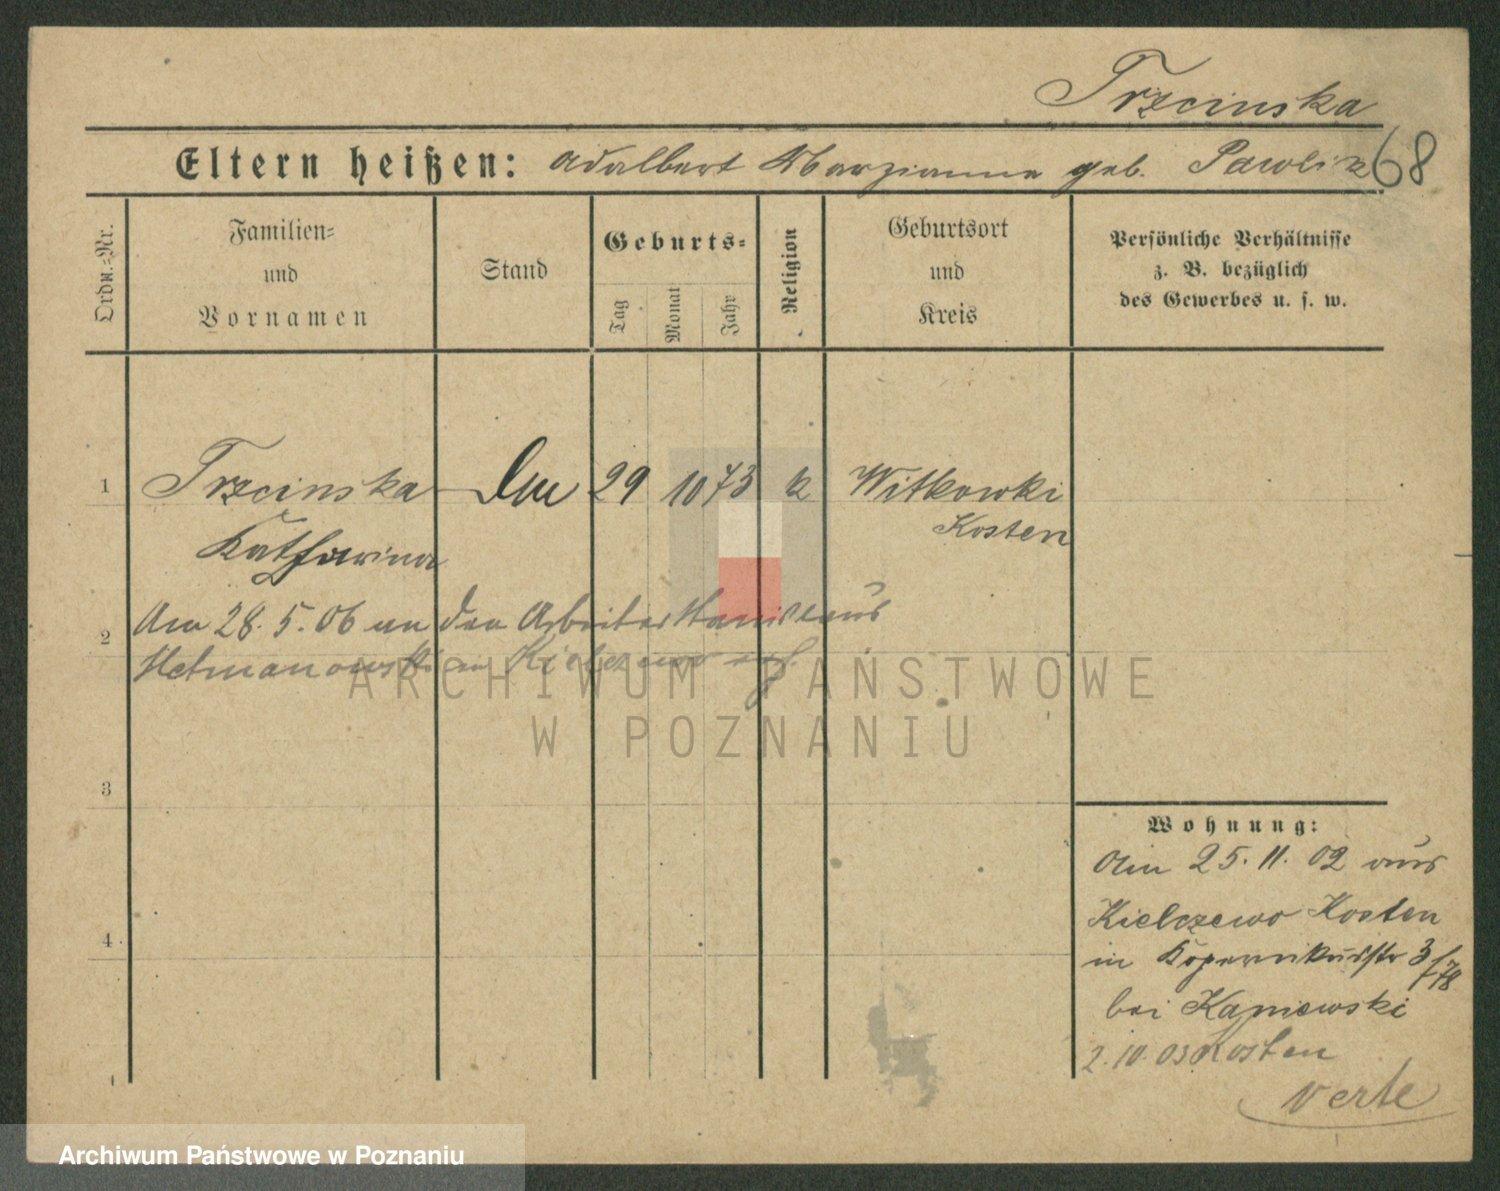 Trzcinska
Eltern heißen: Adalbert Marzianna geb. Pawlik 68
Ordn.=Nr.
Familien= und Vornamen
Stand
Geburts=
Tag Monat Jahr
Religion
Geburtsort und Kreis
Persönliche Verhältnisse z. B. bezüglich des Gewerbes u. s. w.
1 Trzcinska 29 10 73 k Witkowki
Katharina Kosten
2 Am 28. 5. 06 an den Arbeiter Stanislaus
Hetmanowski in Kielczewo
ARCHIWUM PAŃSTWOWE
W POZNANIU
3
4
Wohnung:
Am 25. 11. 02 aus
Kielczewo Kosten
in Kopernikusstr 3/78
bei Kaniewski
2. 10. 03 Kosten
verte
Archiwum Państwowe w Poznaniu